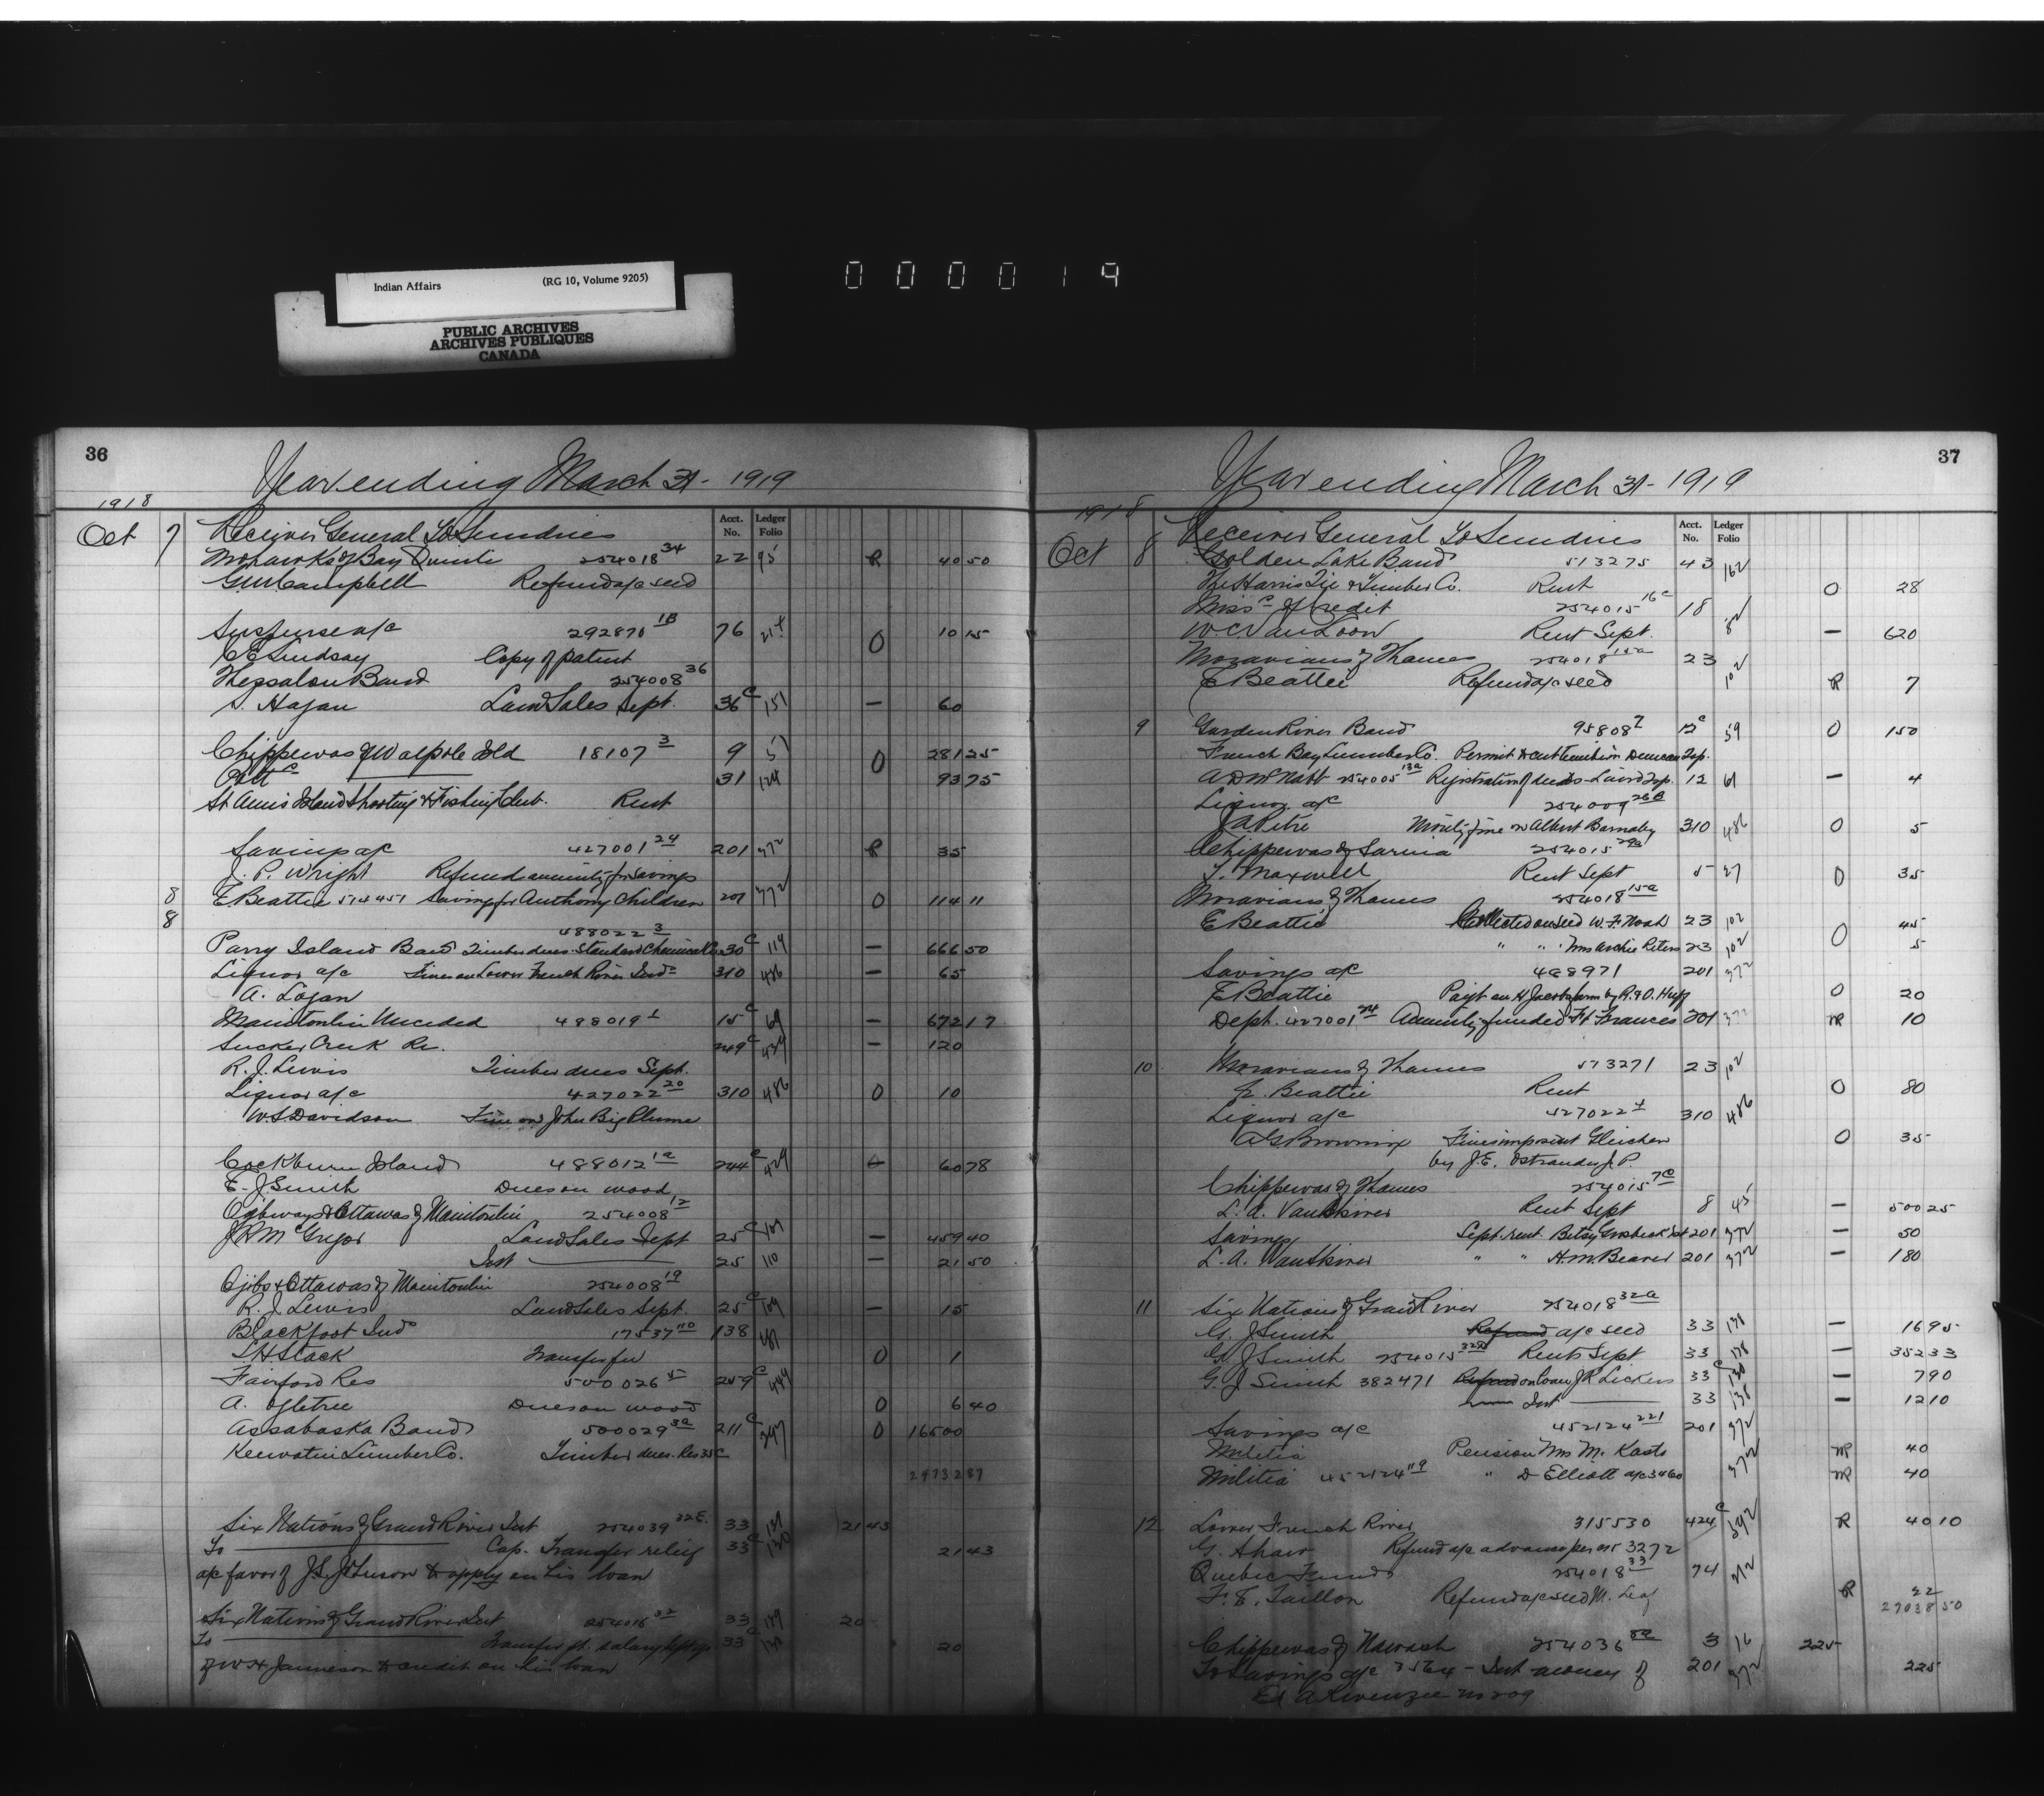 Indian Affairs (RG 10, Volume 9205)
PUBLIC ARCHIVES
ARCHIVES PUBLIQUES
CANADA
000019
36
Year ending March 31 - 1919
1918
Acct. No. Ledger Folio
Oct 7 Receiver General To Sundries
Mohawks of Bay Quinte 254018 34 22 95 R 40 50
G.M. Campbell Refund a/c seed
Suspense a/c 292870 1B 76 214 O 10 15
C E Lindsay Copy of patent
Thessalon Band 254008 36
S. Hagan Land Sales Sept. 36 C 151 — 60
Chippewas of Walpole Isld 18107 3 9 51 O 281 25
31 124 93 75
St Anns Island Shooting & Fishing Club. Rent
Savings a/c 427001 24 201 372 R 35
J. P. Wright Refund annuity for savings
8 E. Beattie 514451 Savings for Anthony Children 201 372 O 114 11
8 488022 3
Parry Island Band Timber dues Standard Chemical Co 30 C 119 — 666 50
Liquor a/c Fines on Lower French River Inds 310 486 — 65
A. Logan
Manitoulin Unceded 488019 1 15 C 69 — 672 17
Sucker Creek Re. 249 C 439 — 120
R. J. Lewis Timber dues Sept.
Liquor a/c 427022 20 310 486 O 10
W.S. Davidson Fine on John Big Plume
Cockburn Island 488012 12 244 C 429 — 60 78
E. J. Smith Dues on wood
Ojibways & Ottawas of Manitoulin 254008 12
J R McGregor Land Sales Sept 25 C 109 — 459 40
Int 25 110 — 21 50
Ojibs & Ottawas of Manitoulin 254008 19
R. J. Lewis Land Sales Sept. 25 C 109 — 15
Blackfoot Inds 17537 110 138
S H Stack Transfer fee O 1
Fairford Res 500026 5 259 C 449
A. Ogletree Dues on wood O 6 40
Assabaska Band 500029 3a 211 C 347 O 165 00
Keewatin Lumber Co. Timber dues. Res 35 C
24732 87
Six Nations of Grand River Int 254039 32E. 33 139 21 43
To Cap. Transfer relief 33 C 130 21 43
a/c favor of J.S. Johnson & apply on his loan
Six Nations of Grand River Int 254016 32 33 139 20
To Transfer pt. salary 33 C 130 20
of W H Jamieson & credit on his loan
37
Year ending March 31 - 1919
1918
Acct. No. Ledger Folio
Oct 8 Receiver General To Sundries
Golden Lake Band 513275 43 162
The Harris Tie & Timber Co. Rent O 28
Missc of Credit 254015 16c 18 82
W.C. VanLoon Rent Sept. — 620
Moravians of Thames 254018 15a 23 102
E Beattie Refund a/c seed R 7
9 Garden River Band 95808 7 12 C 59 O 150
French Bay Lumber Co. Permit to cut timber in Duncan Tsp.
A D McNabb 254005 13a Registration of deeds - Laird Tsp. 12 61 — 4
Liquor a/c 254009 26B
J A Petre Moiety fine on Albert Barnaby 310 486 O 5
Chippewas of Sarnia 254015 29a
T. Maxwell Rent Sept 5 27 O 35
Moravians of Thames 254018 15a
E Beattie Collected on seed W. F. Noah 23 102 O 45
" " Mrs Archie Peters 23 102 5
Savings a/c 488971 201 372
E Beattie Payt on H Jacobs farm by R. & O. Huff O 20
Dept. 427001 24 Annuity funded Ft Frances 201 372 NR 10
10 Moravians of Thames 513271 23 102
E. Beattie Rent O 80
Liquor a/c 427022 4 310 486
A G Browning Fines imposed at Gleichen O 35
by J.E. Ostrander J. P.
Chippewas of Thames 254015 7c
L. A. VanSkiver Rent Sept 8 45 — 500 25
Savings Sept. rent Betsy Grosbeck Est 201 372 — 50
L. A. VanSkiver " " H. M. Beaver 201 372 — 180
11 Six Nations of Grand River 254018 32a
G. J. Smith Refund a/c seed 33 138 — 16 95
G. J Smith 254015 32a Rents Sept 33 138 — 352 33
G. J Smith 382471 Refund on loan J R Lickers 33 C 130 — 7 90
Int 33 138 — 12 10
Savings a/c 452124 221 201 372
Militia Pension Mrs M. Kasto NR 40
Militia 452124 119 " D Elliott a/c 3460 372 NR 40
12 Lower French River 315530 424 C 592 R 40 10
G. Shaw Refund a/c advance per or 3272
Quebec Funds 254018 33 74 212
F. E. Taillon Refund a/c seed M. Leaf R 22
27038 50
Chippewas of Nawash 254036 8a 3 16 225
To Savings a/c 3564 - Int money of 201 372 225
Ed A Kwenzee no 209